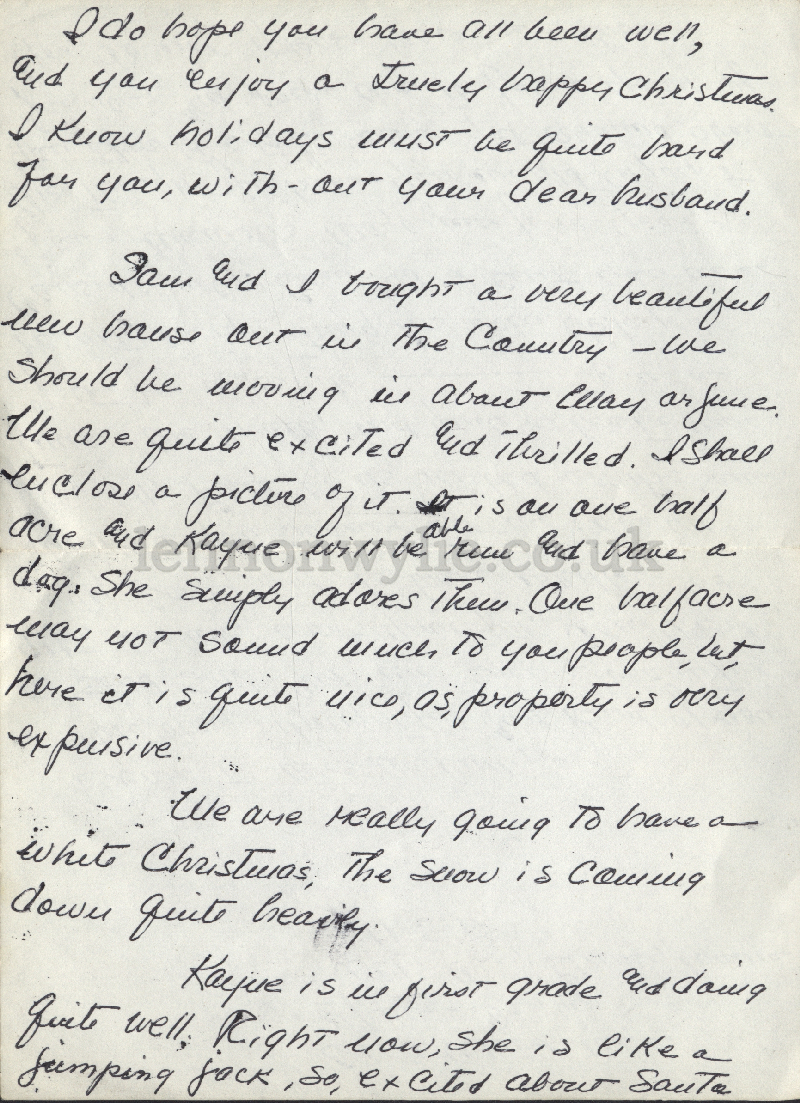 I do hope you have all been well,
and you enjoy a truely happy Christmas.
I know holidays must be quite hard
for you, with-out your dear husband.
Sam and I bought a very beautiful
new house out in the Country - we
should be moving in about May or June.
We are quite excited and thrilled. I shall
enclose a picture of it. It is on one half
acre and Kayne will be able run and have a
dog. She simply adores them. One half acre
may not sound much to you people, but,
here it is quite nice, as, property is very
expensive.
We are really going to have a
white Christmas, the snow is coming
down quite heavily.
Kayne is in first grade and doing
quite well. Right now, she is like a
jumping jack, so, excited about Santa
lennonwylie.co.uk